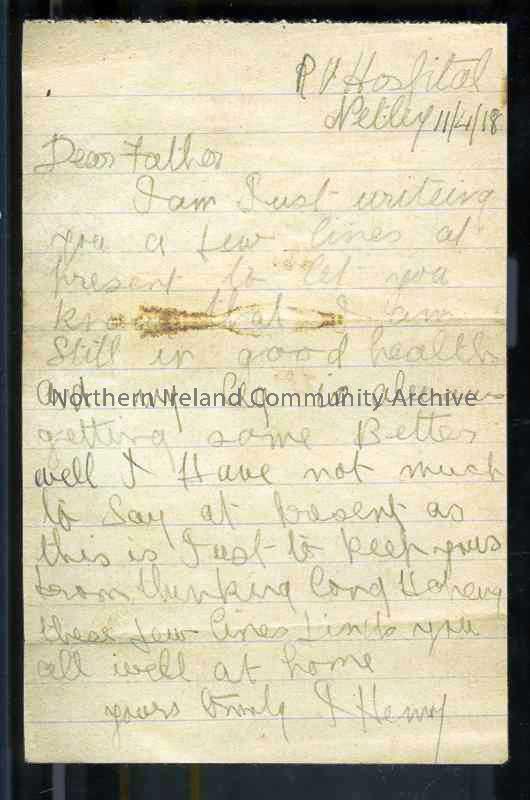 R V Hospital
Netley 11/4/18
Dear Father
I am Just writeing
you a few lines at
present to let you
know that I am
Still in good health
and my leg is
Northern Ireland Community Archive
getting some Better
well I Have not much
to Say at present as
this is Just to keep yous
from thinking long
these few lines finds you
all well at home
yours I Henry